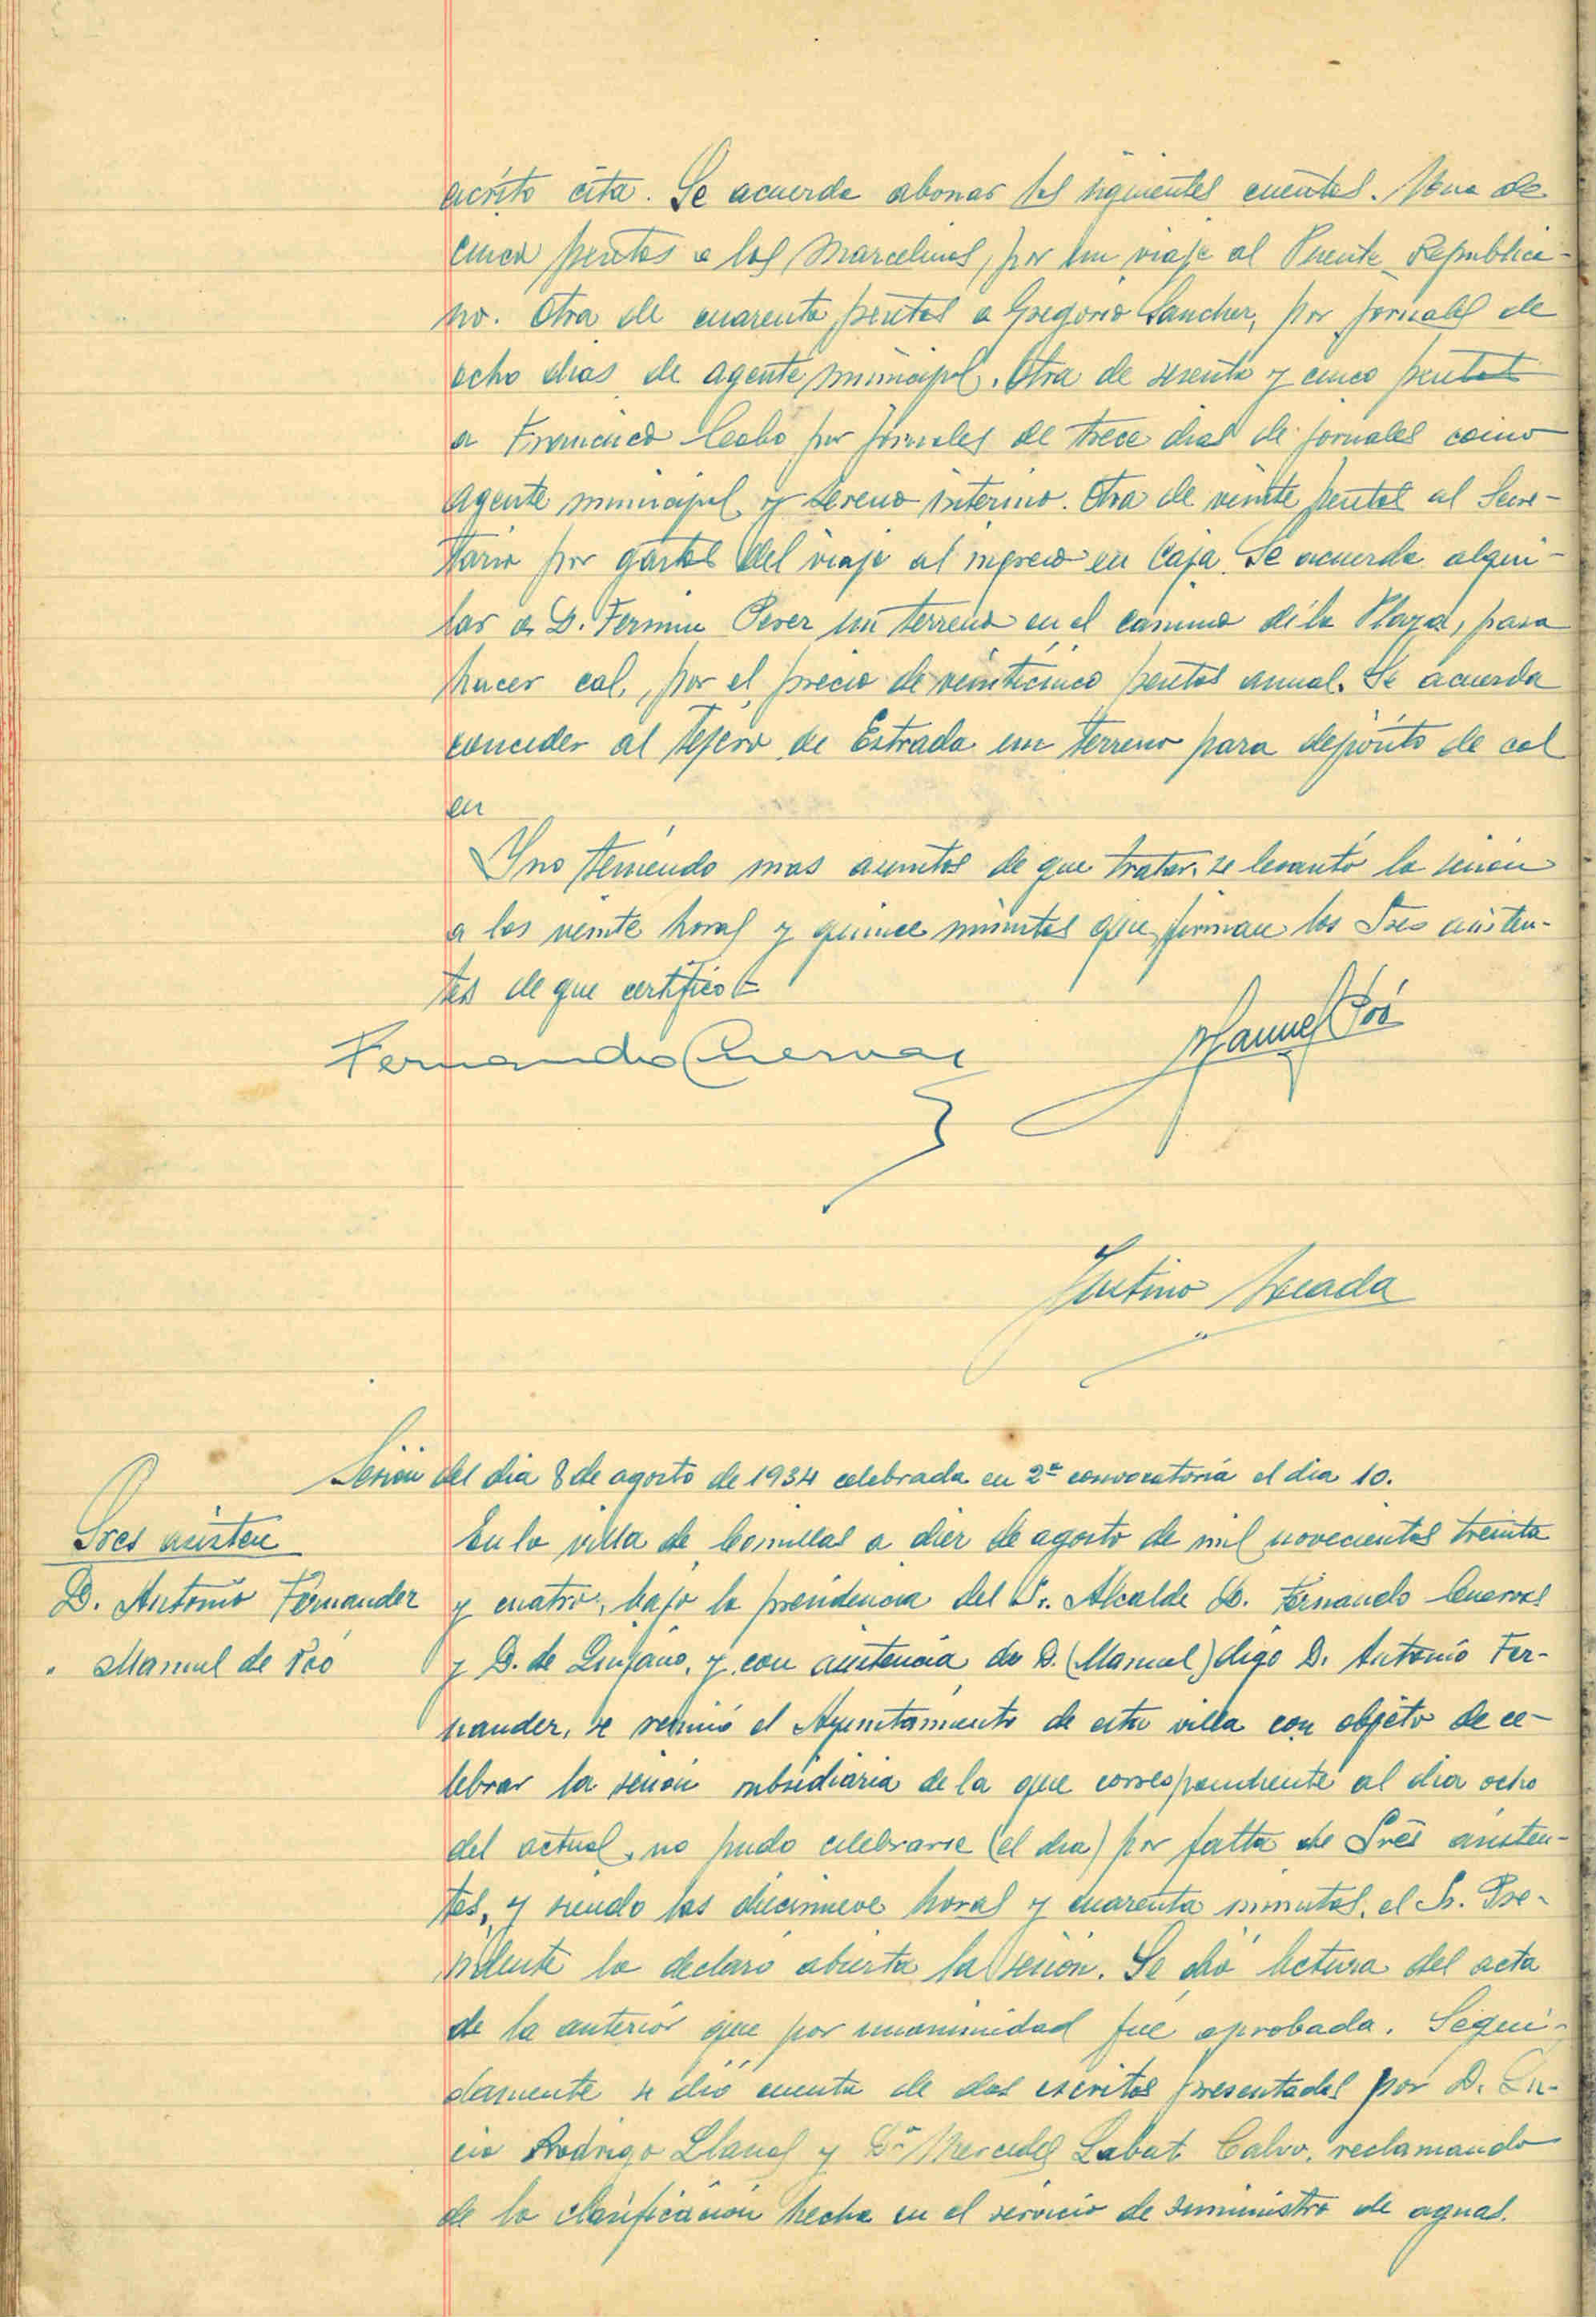 escrito cita. Se acuerda abonar las siguientes cuentas. Una de
cinco pesetas a los Marcelinos, por un viaje al Puente Republica-
no. Otra de cuarenta pesetas a Gregorio Sanchez, por jornales de
ocho dias de agente municipal. Otra de sesenta y cinco pesetas
a Francisco Ceabo por jornales de trece dias de jornales como
agente municipal y sereno interino. Otra de veinte pesetas al Secre-
tario por gastos del viaje al ingreso en Caja. Se acuerda alqui-
lar a D. Fermin Perez un terreno en el camino de la Plaza, para
hacer cal, por el precio de veinticinco pesetas anual. Se acuerda
conceder al tejero de Estrada un terreno para depósito de cal
en
Y no teniendo mas asuntos de que tratar, se levantó la sesión
a las veinte horas y quince minutos que firman los Sres asisten-
tes de que certifico=
Fernando Cuevas
Manuel Póo
Justino
Sesion del dia 8 de agosto de 1934 celebrada en 2ª convocatoria el dia 10.
Sres asisten
D. Antonio Fernandez
" Manuel de Póo
En la villa de Comillas a diez de agosto de mil novecientos treinta
y cuatro, bajo la presidencia del Sr. Alcalde D. Fernando Cuevas
y D. de Quijano, y con asistencia de D. (Manuel) digo D. Antonio Fer-
nandez, se reunió el Ayuntamiento de esta villa con objeto de ce-
lebrar la sesión subsidiaria de la que correspondiente al dia ocho
del actual, no pudo celebrarse (el dia) por falta de Sres asisten-
tes, y siendo las diecinueve horas y cuarenta minutos, el Sr. Pre-
sidente la declaró abierta la sesión. Se dió lectura del acta
de la anterior que por unanimidad fué aprobada. Segui-
damente se dió cuenta de dos escritos presentados por D. Lu-
cio Rodrigo Llanos y Dª Mercedes Labat Calvo, reclamando
de la clasificación hecha en el servicio de suministro de aguas.